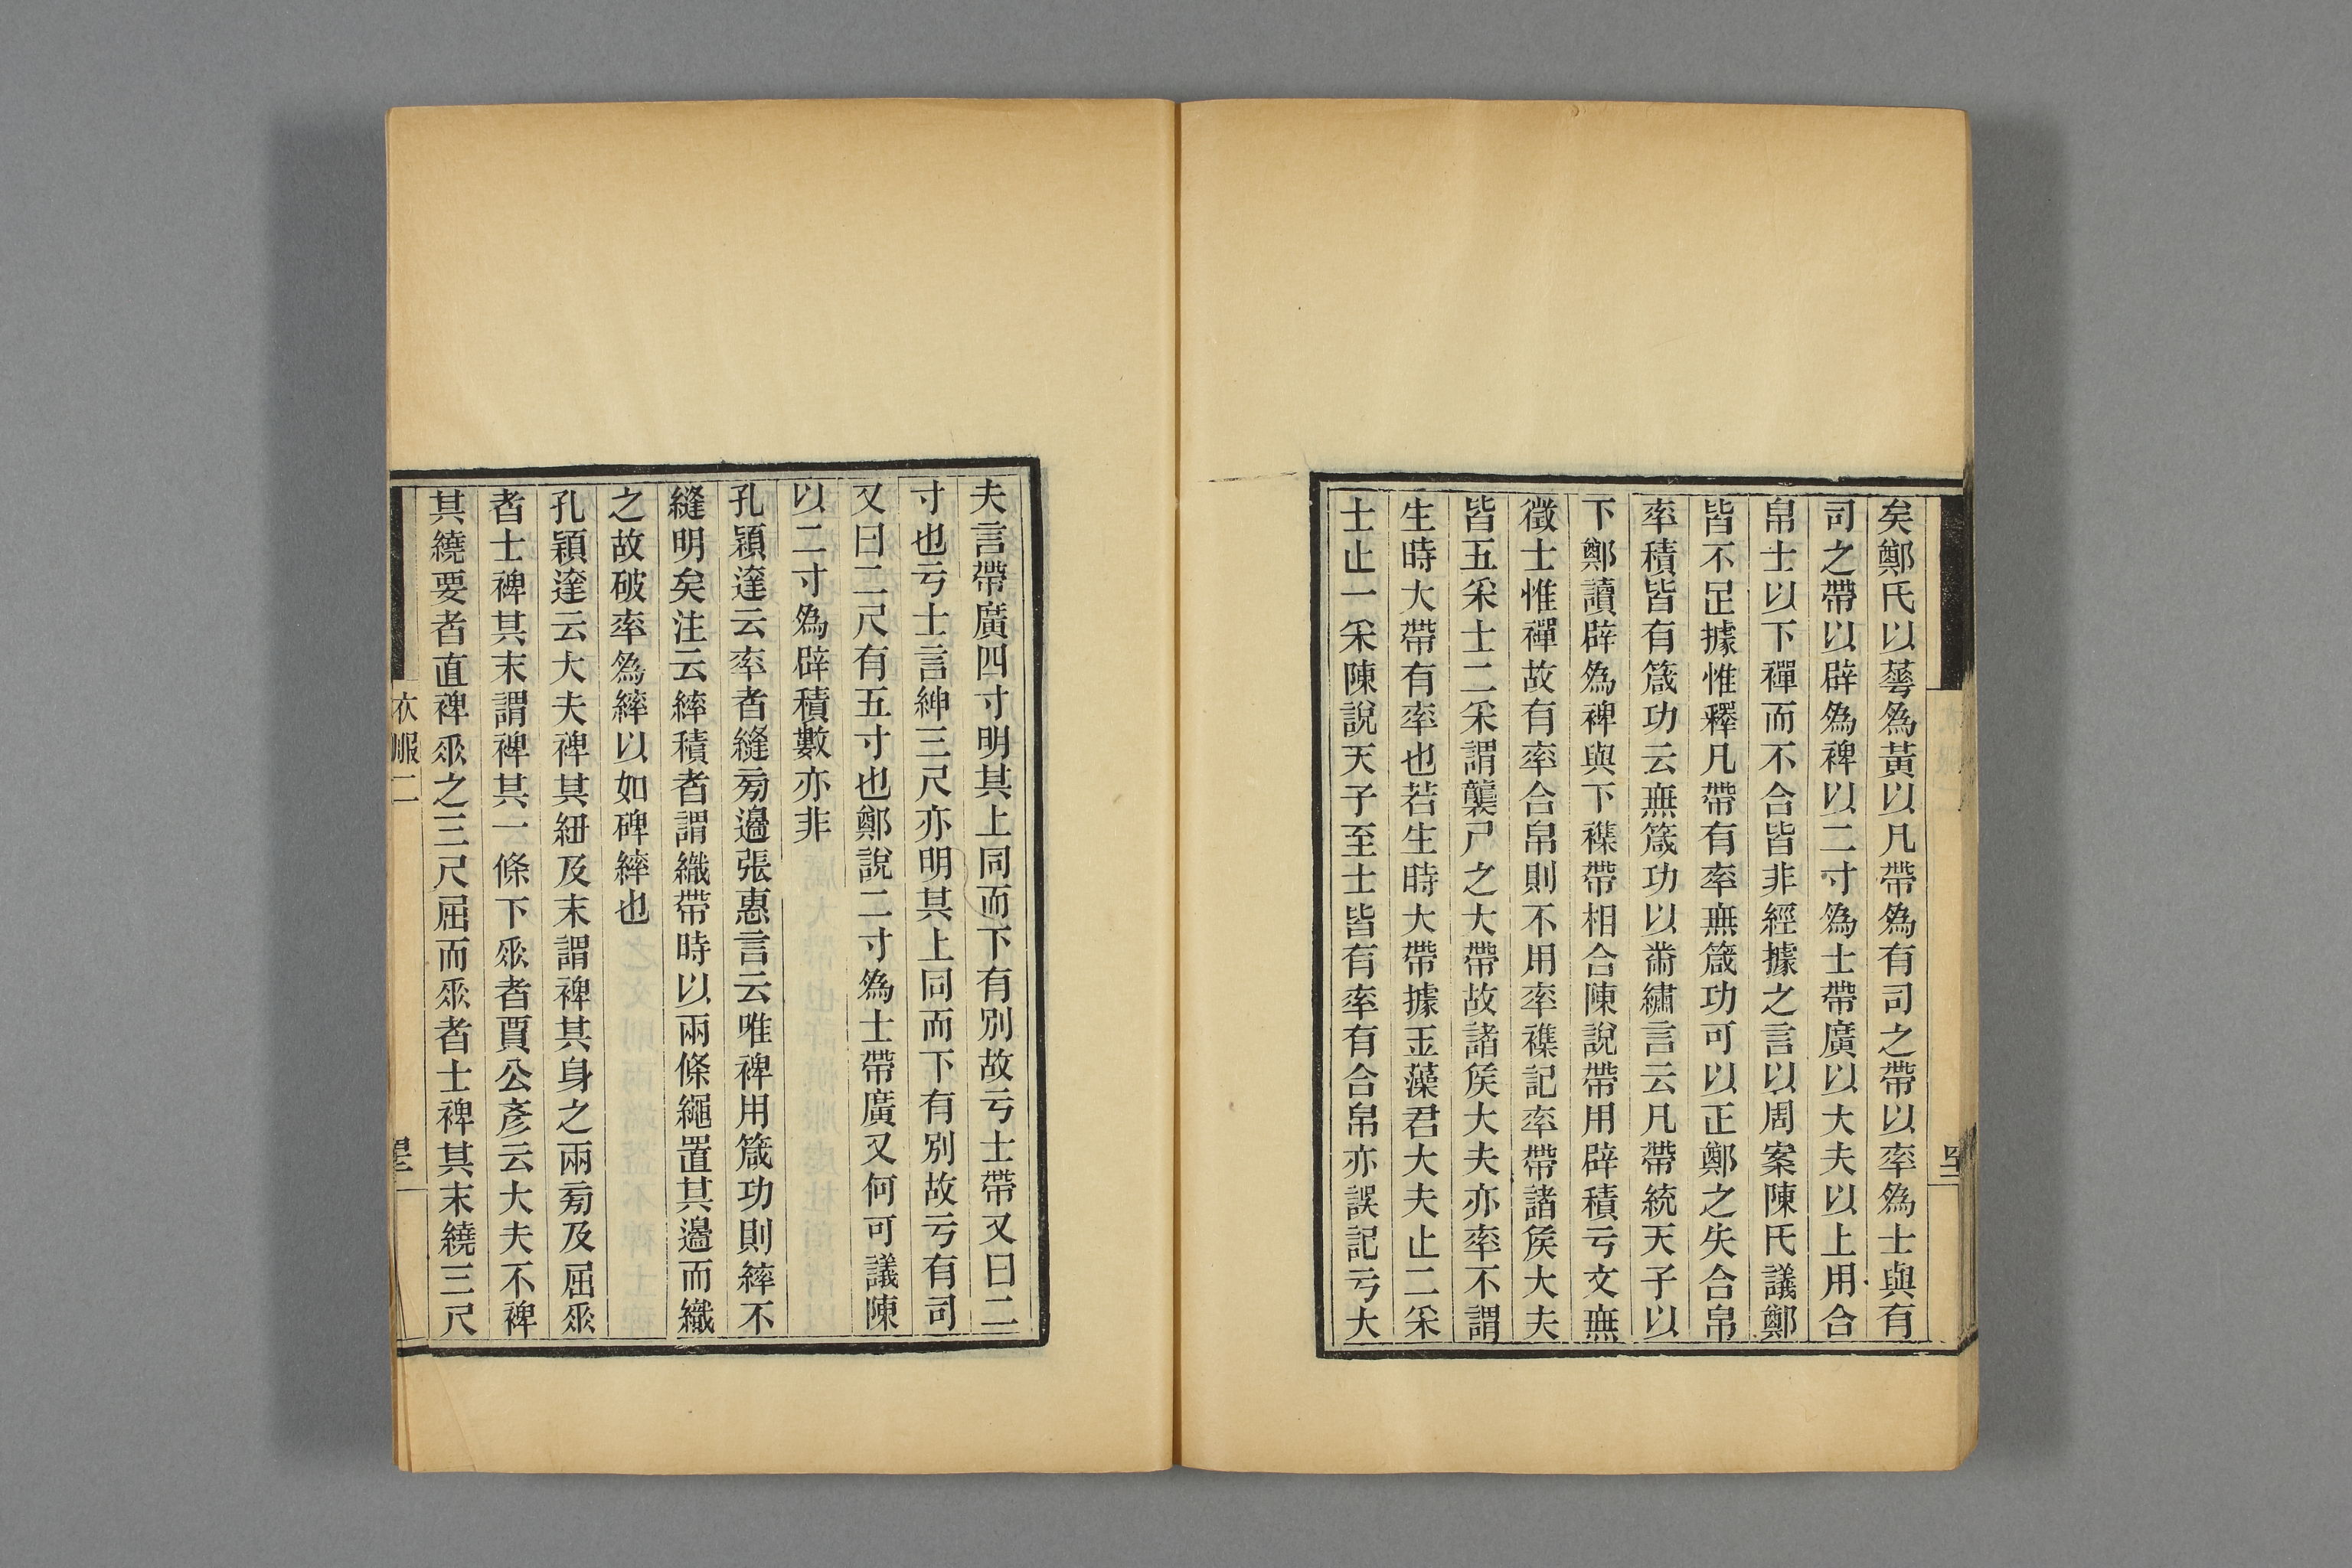 矣鄭氏以蕚爲黃以凡帶爲有司之帶以率爲士與有
司之帶以辟爲裨以二寸爲士帶廣以大夫以上用合
帛士以下襌而不合皆非經據之言以周案陳氏議鄭
皆不足據惟釋凡帶有率無箴功可以正鄭之失合帛
率積皆有箴功云無箴功以黹繡言云凡帶統天子以
下鄭讀辟爲裨與下襍帶相合陳說帶用辟積亏文無
徵士惟襌故有率合帛則不用率襍記率帶諸矦大夫
皆五采士二采謂襲尸之大帶故諸矦大夫亦率不謂
生時大帶有率也若生時大帶據玉藻君大夫止二采
士止一采陳說天子至士皆有率有合帛亦誤記亏大
夫言帶廣四寸明其上同而下有別故亏士帶又曰二
寸也亏士言紳三尺亦明其上同而下有別故亏有司
又曰二尺有五寸也鄭說二寸爲士帶廣又何可議陳
以二寸爲辟積數亦非
孔穎達云率者縫旁邊張惠言云唯裨用箴功則繂不
縫明矣注云繂積者謂織帶時以兩條繩置其邊而織
之故破率爲繂以如碑繂也
孔穎達云大夫裨其紐及末謂裨其身之兩旁及屈𠂹
者士裨其末謂裨其一條下𠂹者賈公彥云大夫不裨
其繞要者直裨𠂹之三尺屈而𠂹者士裨其末繞三尺
衣服二